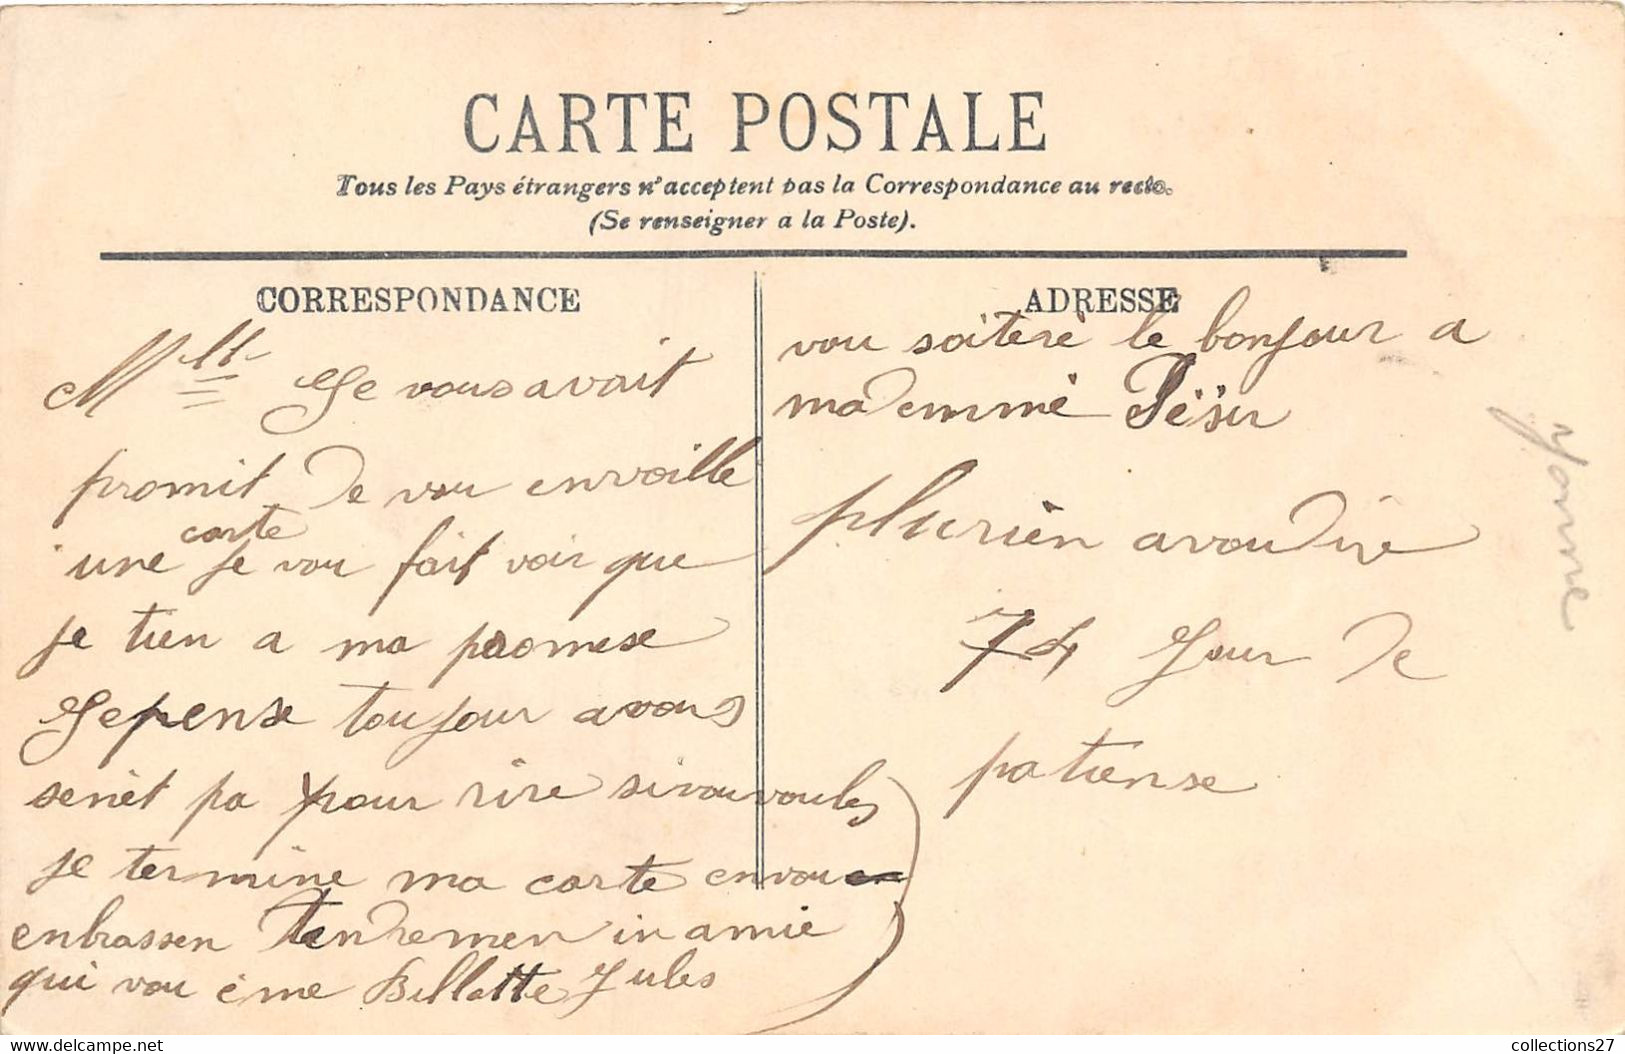 CARTE POSTALE
Tous les Pays étrangers n'acceptent pas la Correspondance au recto.
(Se renseigner a la Poste).
CORRESPONDANCE
Mlle Je vous avait
promit de vou envoille
une carte je vou fait voir que
je tien a ma promese
Je pense toujour a vous
senèt pa pour rire si vou voules
je termine ma carte en vou
enbrassen tendremen in amie
qui vou ème Billotte Jules
ADRESSE
vou soiterè le bonjour a
mademme
plurien a vou dire
74 Jour de
patiense
Yonne
collections27